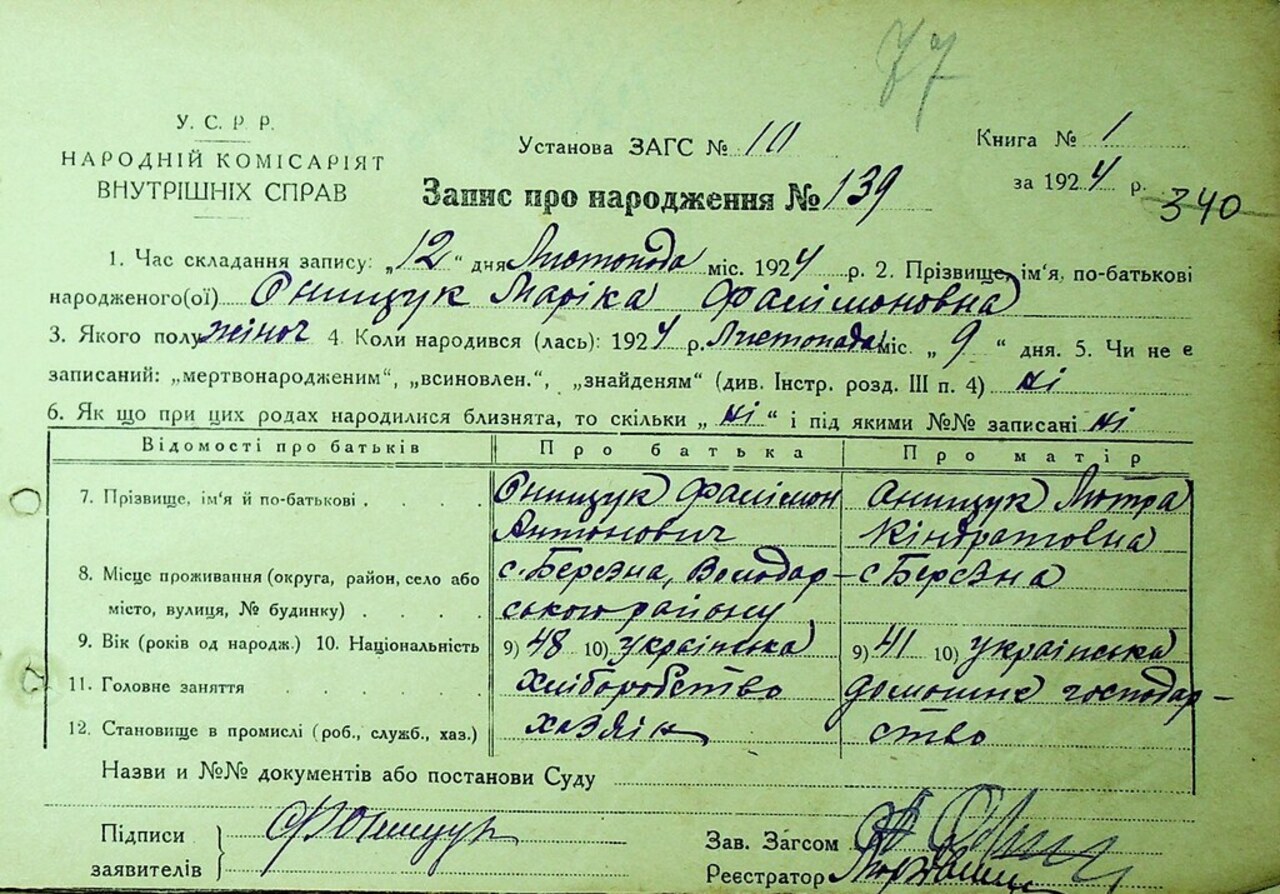 77
У. С. Р. Р.
НАРОДНІЙ КОМІСАРІЯТ
ВНУТРІШНІХ СПРАВ
Установа ЗАГС № 10
Книга № 1
за 1924 р.
340
Запис про народження № 139
1. Час складання запису: „12" дня Листопада міс. 1924 р. 2. Прізвище, ім'я, по-батькові
народженого(ої) Онищук Маріка Філімоновна
3. Якого полу жіноч 4. Коли народився (лась): 1924 р. Листопада міс. „9" дня. 5. Чи не є
записаний: „мертвонародженим", „всиновлен.", „знайденям" (див. Інстр. розд. III п. 4) ні
6. Як що при цих родах народилися близнята, то скільки „ні" і під якими №№ записані ні
Відомості про батьків Про батька Про матір
7. Прізвище, ім'я й по-батькові Онищук Філімон Антонович Анищук Мотра Кіндратовна
8. Місце проживання (округа, район, село або місто, вулиця, № будинку) с. Березна, Володарського району с Березна
9. Вік (років од народж.) 10. Національність 9) 48 10) українська 9) 41 10) українська
11. Головне заняття хліборобство домошнє господарство
12. Становище в промислі (роб., служб., хаз.) хазяїн
Назви и №№ документів або постанови Суду
Підписи заявителів
Зав. Загсом
Реєстратор